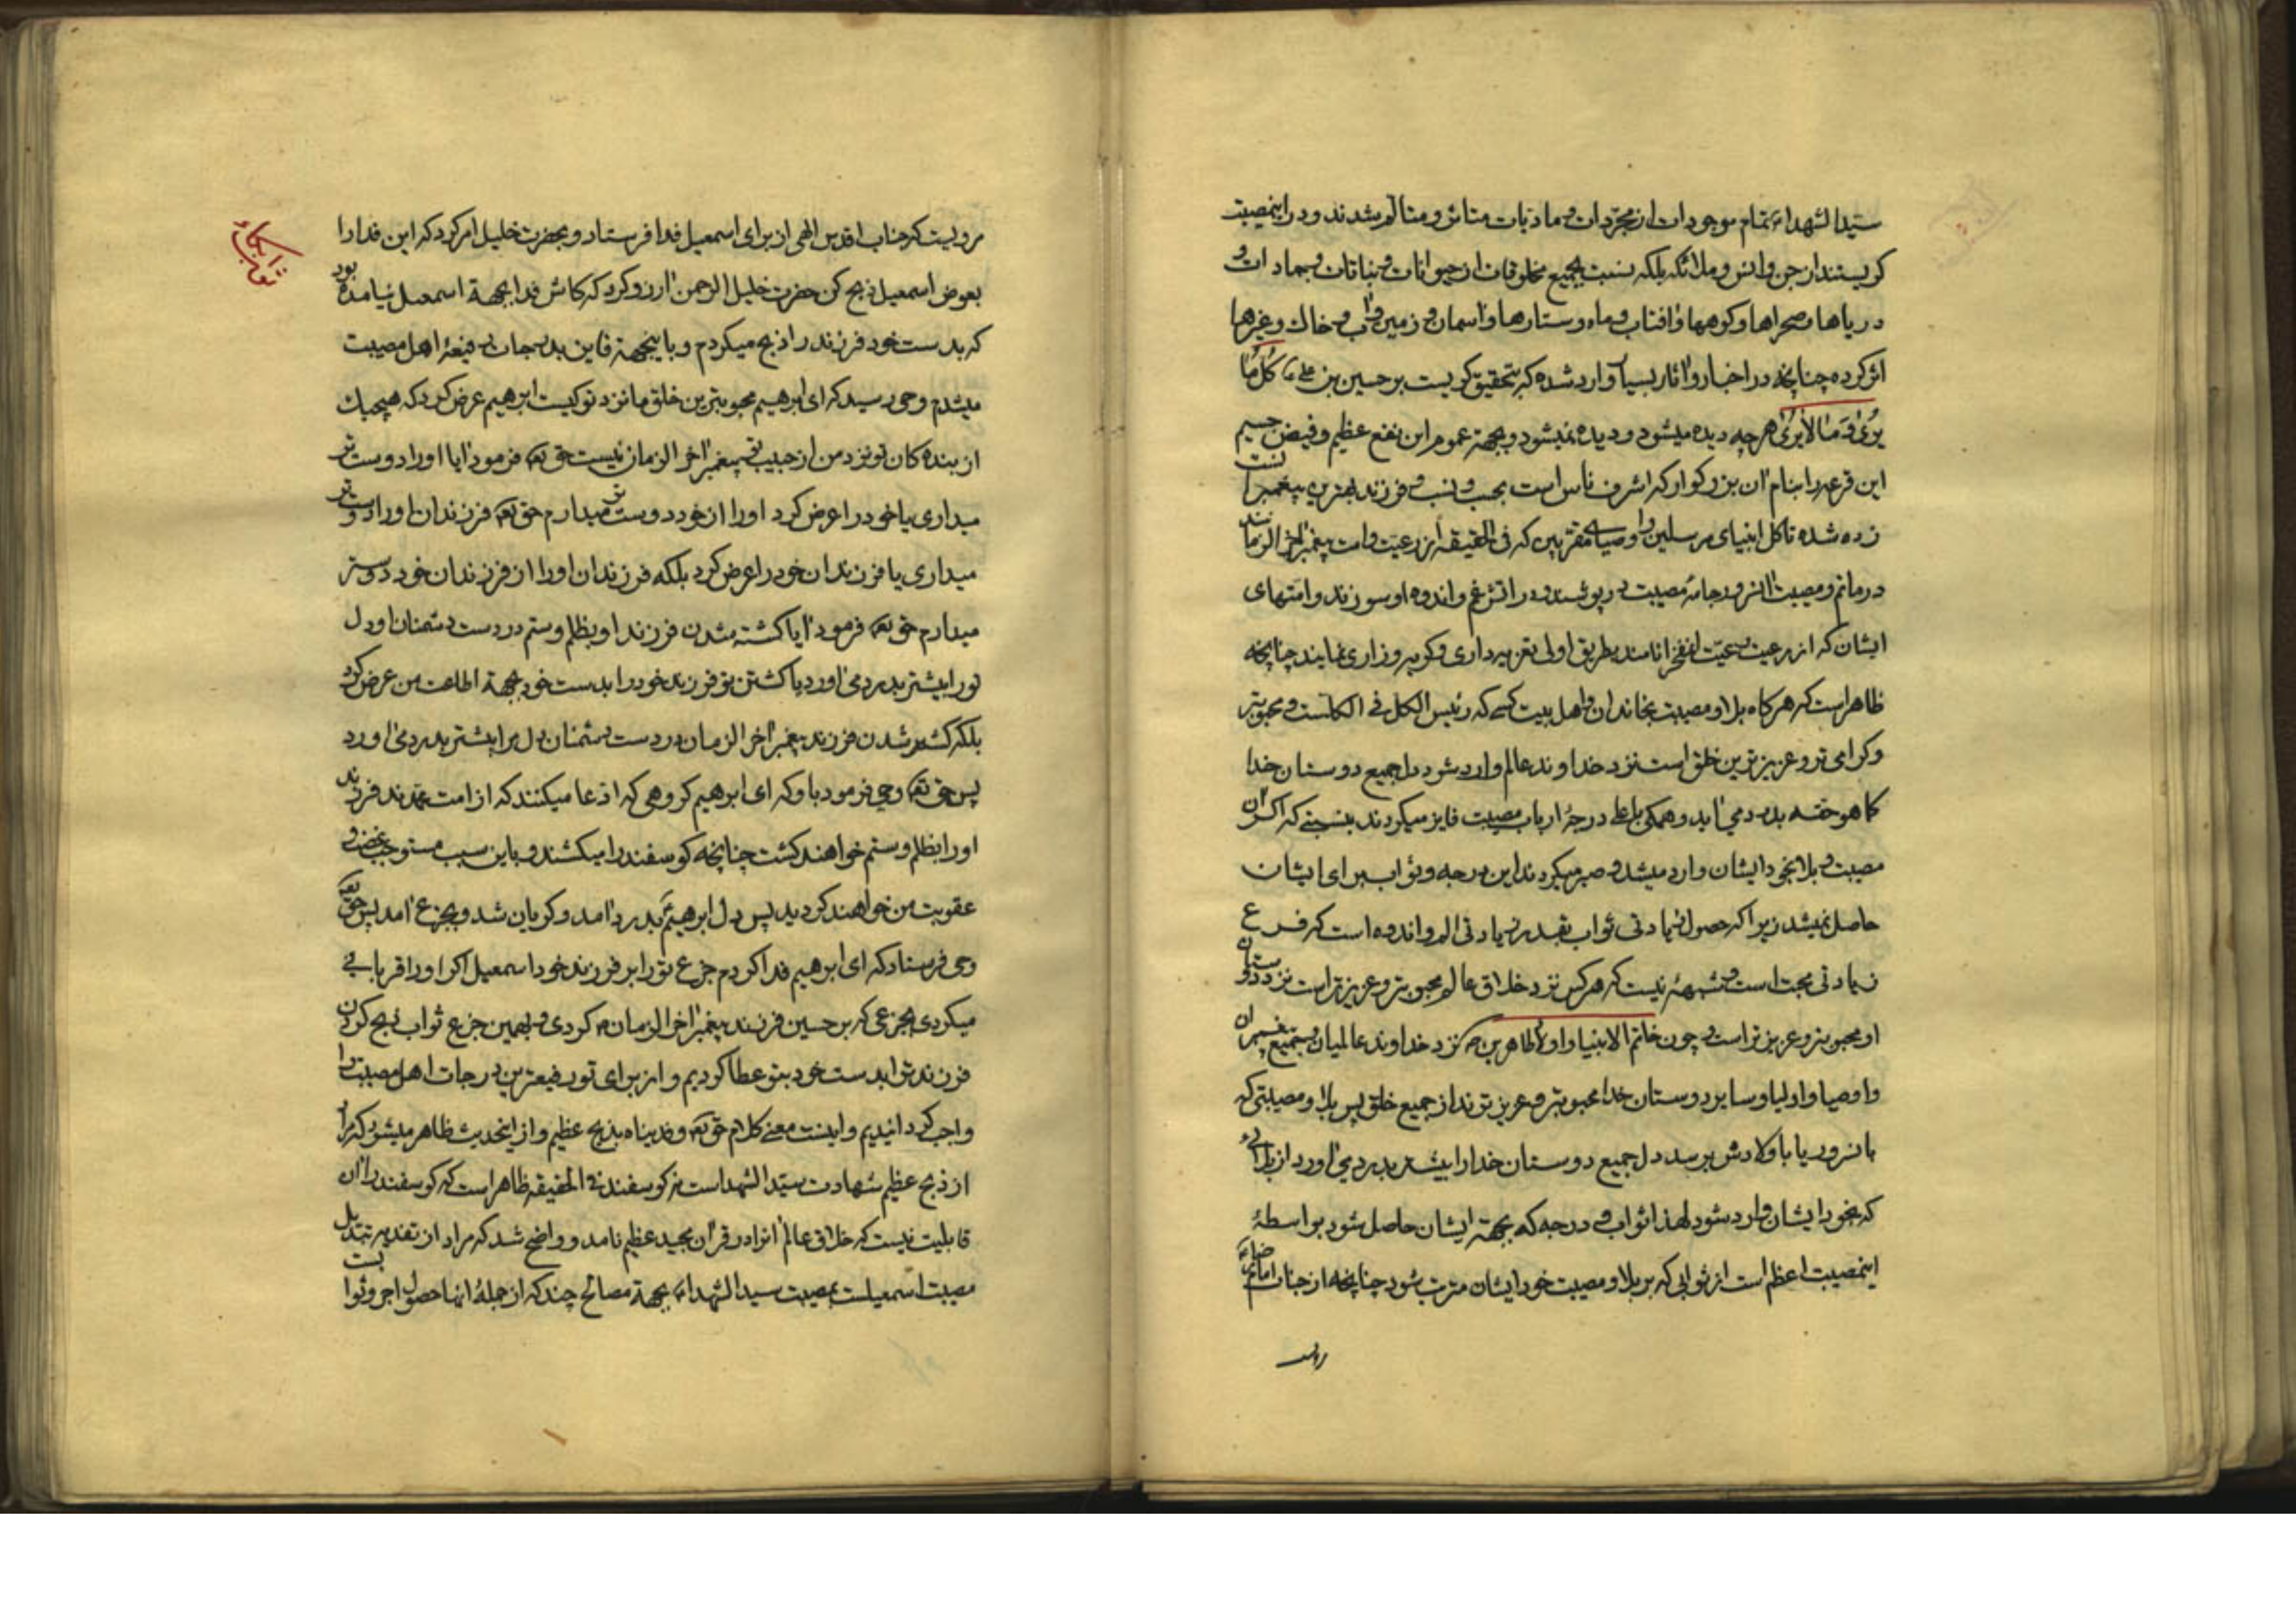 سید الشهداء تمام موجودات از مجردات و مادیات متاثر و متالم شدند و در اینمصیبت
کریستند از جن و انس و ملائکه بلکه بنسبت بجمیع مخلوقات از حیوانات و نباتات و جمادات و
دریاها و صحراها و کوهها و افتاب و ماه و ستارها و اسمان و زمین و اب و خاک و غیرها
اثر کرده چنانچه در اخبار و اثار بسیار وارد شده که بتحقیق کریست بر حسین بن علی ع کل ما
یری و ما لا یری هر چه دیده میشود و دیده نمیشود و بجهة عموم این نفع عظیم و فیض جسیم
این قرعه را بنام ان بزرکوار که اشرف ناس است بحسب و نسب و فرزند بهترین پیغمبرا نست
زده شده تا کل انبیای مرسلین و اوصیای مقربین که فی الحقیقه از رعیت و امت پیغمبر اخر الزمانند
در ماتم و مصیبت انسرور جامه مصیبت در پوشند و در اتش غم و اندوه او سوزند و امتهای
ایشان که از رعیت رعیت انمفخر اناسند بطریق اولی تعزیه داری و کریه و زاری نمایند چنانچه
ظاهر است که هر کاه بلا و مصیبت بخاندان و اهل بیت کسی که رئیس الکل فی الکلست و محبوبتر
و کرامی تر و عزیزترین خلق است نزد خداوند عالم وارد شود دل جمیع دوستان خدا
کما هو حقه بدرد می اید و همکی باعلی درجهٔ ارباب مصیبت فایز میکردند بنسبتی که اکر ان
مصیبت و بلا بخود ایشان وارد میشد و صبر میکردند این درجه و ثواب برای ایشان
حاصل نمیشد زیرا که حصول زیادتی ثواب بقدر زیادتی الم و اندوه است که فرع
زیادتی محبت است و شبههٔ نیست که هر کس نزد خلاق عالم محبوبتر و عزیزتر است نزد دوستان
او محبوبتر و عزیزتر است و چون خاتم الانبیا و اولاد طاهرین ص نزد خداوند عالمیان و جمیع پیغمبران
و اوصیا و اولیا و سایر دوستان خدا محبوبتر و عزیزترند از جمیع خلق پس بلا و مصیبتی که
بانسرور یا باولادش برسد دل جمیع دوستان خدا را بیشتر بدرد می اورد از بلائی
که بخود ایشان وارد شود لهذا ثواب و درجه که بجهة ایشان حاصل شود بواسطهٔ
اینمصیبت اعظم است از ثوابی که بر بلا و مصیبت خود ایشان مترتب شود چنانچه از جناب امام رضاء
مرویست که جناب اقدس الهی از برای اسمعیل فدا فرستاد و بحضرت خلیل امر کرد که این فدا را
بعوض اسمعیل ذبح کن حضرت خلیل الرحمن ارزو کرد که کاش فدا بجهة اسمعیل نیامده بود
که بدست خود فرزند را ذبح میکردم و باینجهة فایز بدرجات رفیعهٔ اهل مصیبت
میشدم وحی رسید که ای ابرهیم محبوبترین خلق ما نزد تو کیست ابرهیم عرض کرد که هیچیک
از بنده کان تو نزد من از حبیب تو پیغمبر اخر الزمان نیست حق تع فرمود ایا او را دوست تر
میداری یا خود را عرض کرد او را از خود دوست تر میدارم حق تع فرزندان او را دوست تر
میداری یا فرزندان خود را عرض کرد بلکه فرزندان او را از فرزندان خود دوستر
میدارم حق تع فرمود ایا کشته شدن فرزند او بظلم و ستم در دست دشمنان او دل
تو را بیشتر بدرد می اورد یا کشتن تو فرزند خود را بدست خود بجهة اطاعت من عرض کرد
بلکه کشته شدن فرزند پیغمبر اخر الزمان در دست دشمنان دل مرا بیشتر بدرد می اورد
پس حق تع وحی فرمود باو که ای ابرهیم کروهی که ادعا میکنند که از امت محمدند فرزند
او را بظلم و ستم خواهند کشت چنانچه کوسفند را میکشند و باین سبب مستوجب غضب و
عقوبت من خواهند کردید پس دل ابرهیم ع بدرد امد و کریان شد و بجزع امد پس حق تع
وحی فرستاد که ای ابرهیم فدا کردم جزع تو را بر فرزند خود اسمعیل اکر او را قربانی
میکردی بجزعی که بر حسین فرزند پیغمبر اخر الزمان ص کردی و بهمین جزع ثواب ذبح کردن
فرزند تو بدست خود بتو عطا کردیم و از برای تو رفیعترین درجات اهل مصیبت را
واجب کردانیدیم و اینست معنی کلام حق تع و فدیناه بذبح عظیم و از اینحدیث ظاهر میشود که مراد
از ذبح عظیم شهادت سید الشهداست نه کوسفند فی الحقیقه ظاهر است که کوسفند را ان
قابلیت نیست که خلاق عالم انرا در قران مجید عظیم نامد و واضح شد که مراد از تفدیه تبدیل
مصیبت اسمعیلست بمصیبت سید الشهداء بجهة مصالح چند که از جملهٔ انها حصول اجر و ثوا بست
ثواب بکاء